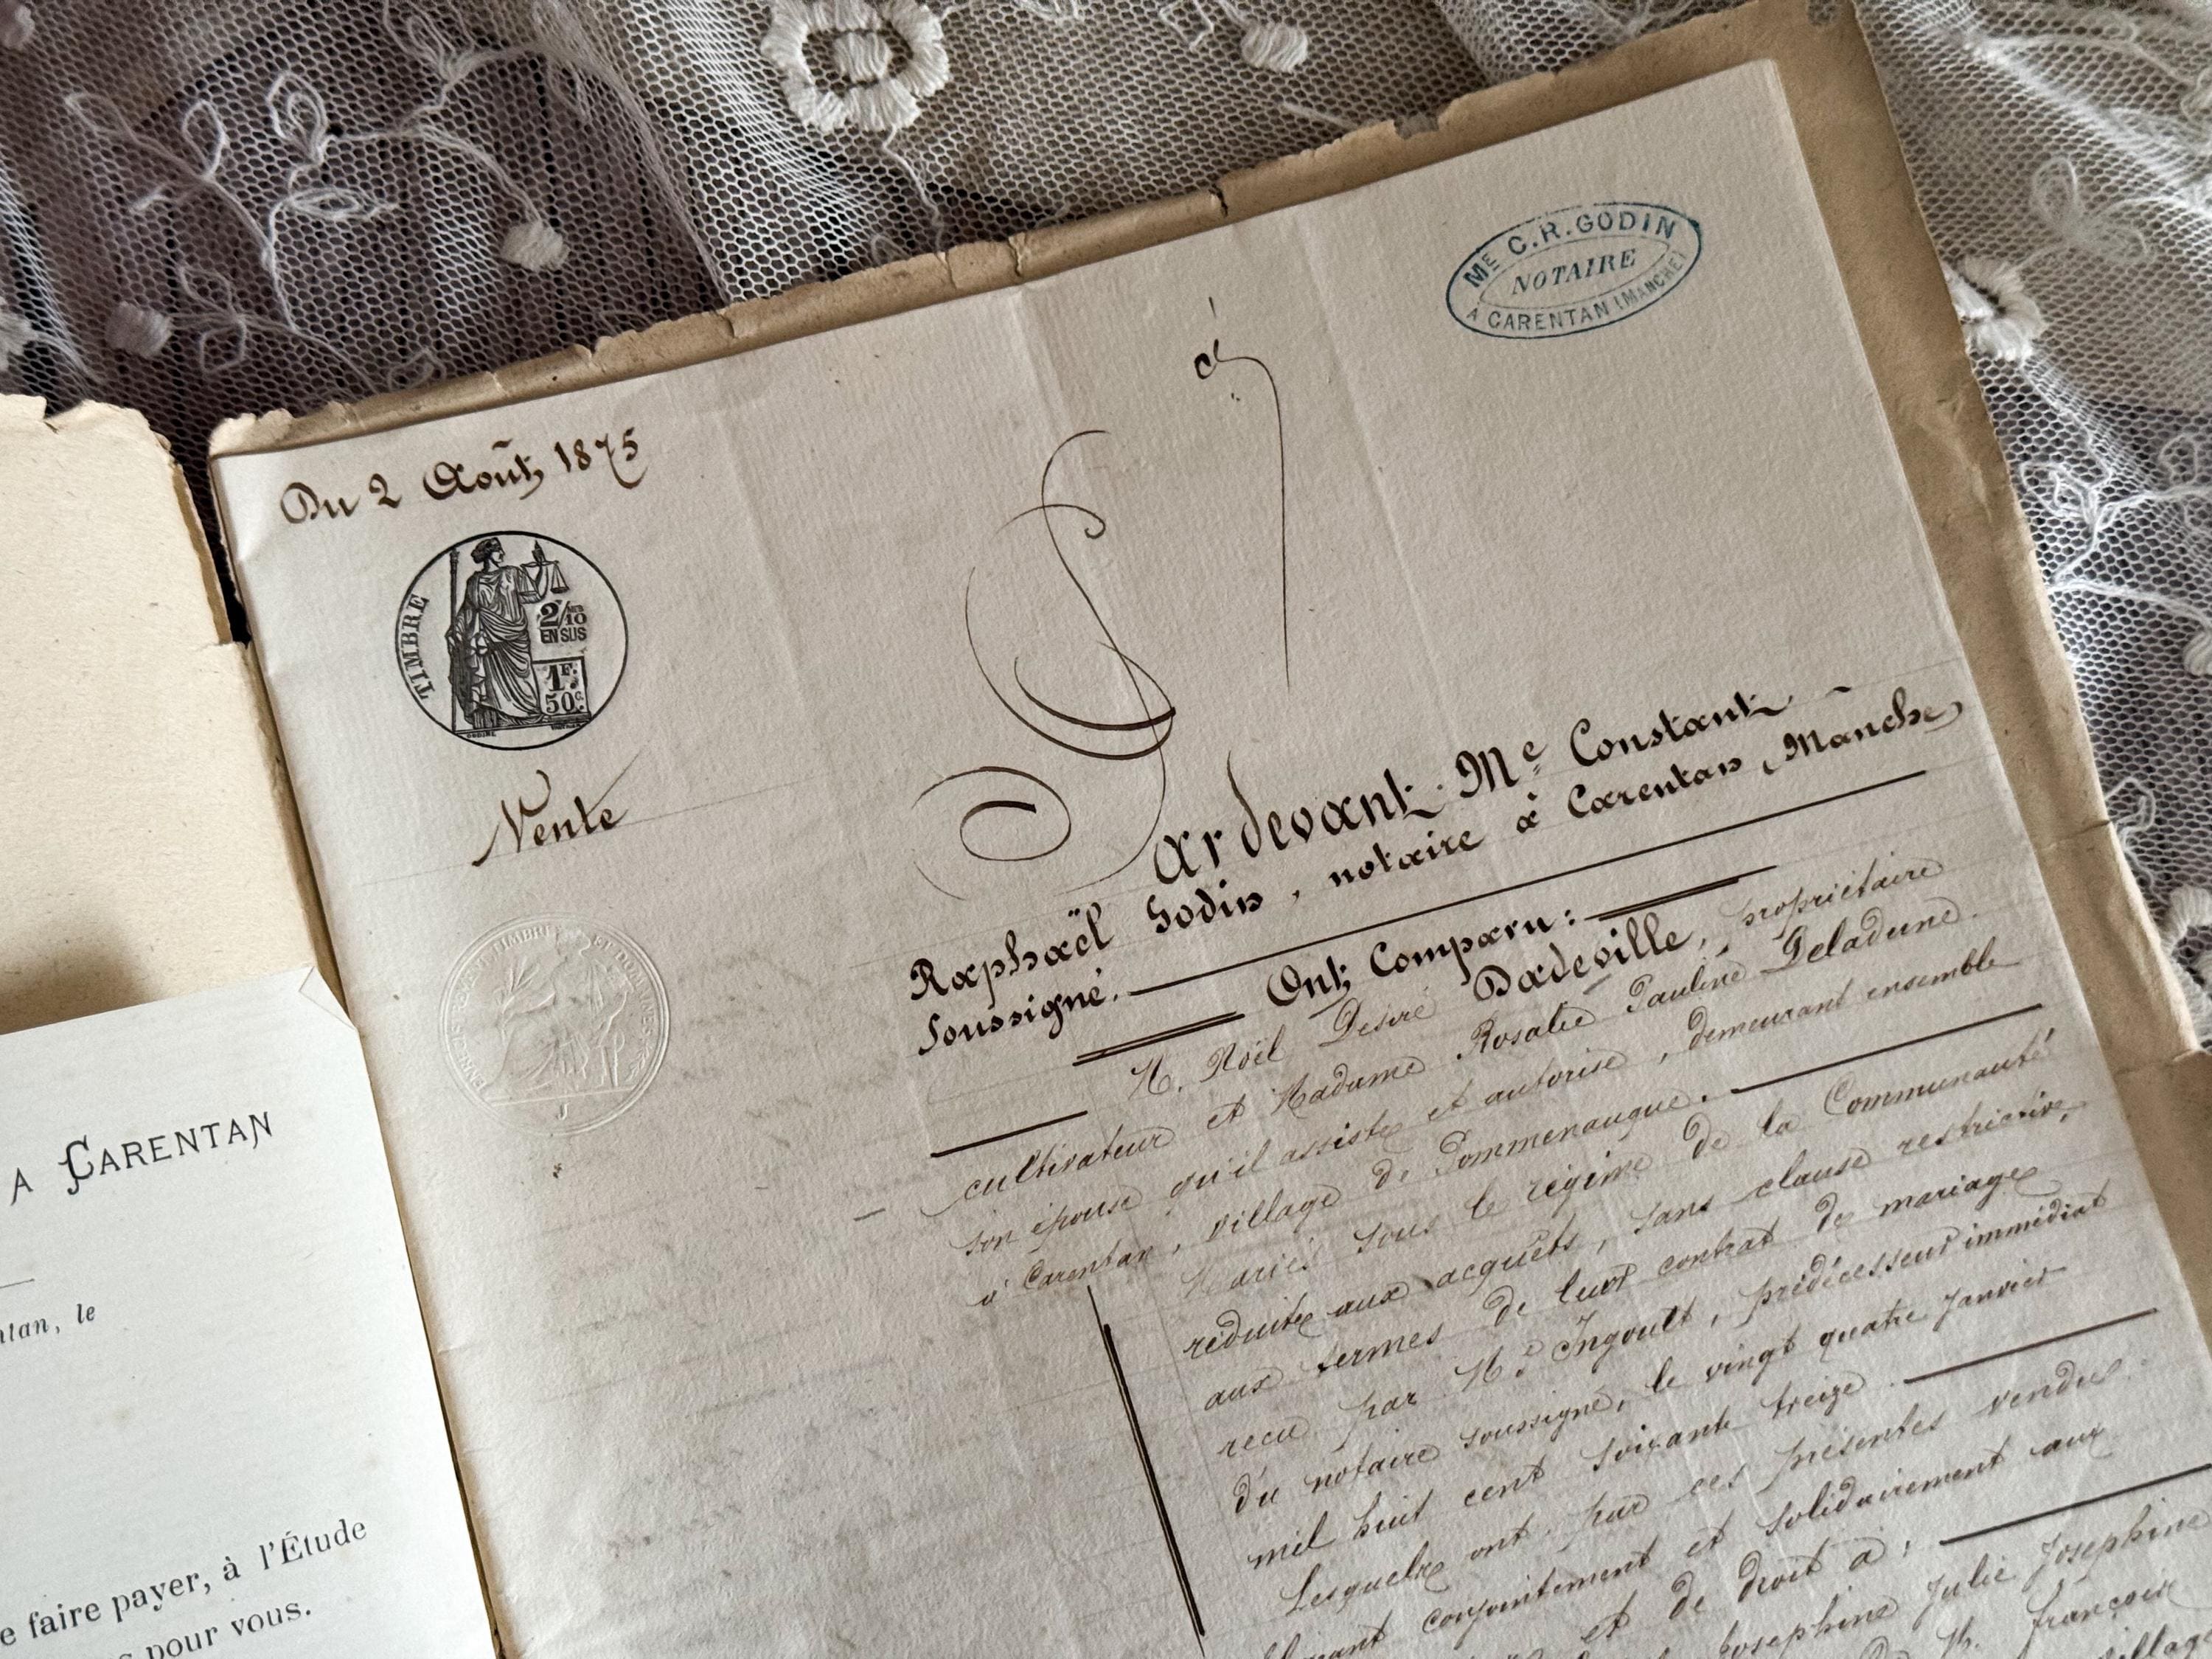 Du 2 Août 1875
TIMBRE
2/10
EN SUS
1F.
50c.
Vente
Me C.R. GODIN
NOTAIRE
A CARENTAN (MANCHE)
Pardevant Me Constant
Raphaël Godin, notaire à Carentan, Manche
Soussigné.
Ont Comparu:
M. Noël Désiré Dadeville, propriétaire
cultivateur et Madame Rosalie Pauline Deladune
son épouse qu'il assiste et autorise, demeurant ensemble
à Carentan, village de Pommenauque.
Mariés sous le régime de la Communauté
réduite aux acquêts, sans clause restrictive,
aux termes de leur contrat de mariage
reçu par Me Ingoult, prédécesseur immédiat
du notaire soussigné, le vingt quatre Janvier
mil huit cent soixante treize.
Lesquels ont, par ces présentes vendu
conjointement et solidairement aux
et de droit à:
Josephine Julie Josephine
M. François
village
A CARENTAN
ntan, le
e faire payer, à l'Étude
s pour vous.